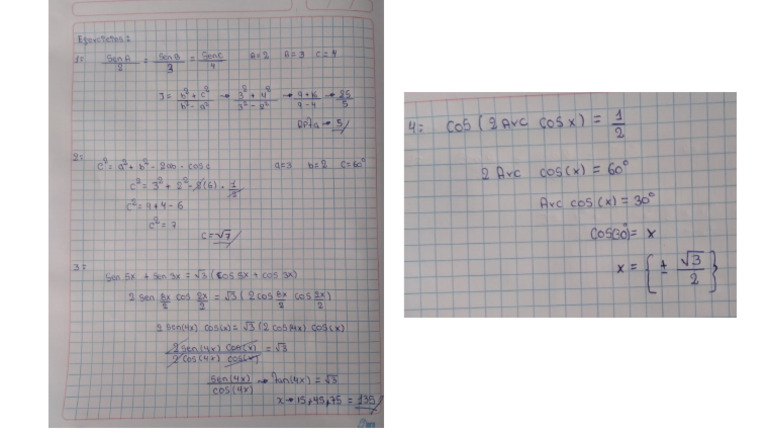 Ejercicios 2
1: SenA/2 = SenB/3 = SenC/4 A=2 B=3 C=4
J = b²+c²/b²-a² → 3²+4²/3²-2² → 9+16/9-4 → 25/5
Rpta → 5/
2:
c² = a² + b² - 2ab · cos c a=3 b=2 C=60°
c² = 3² + 2² - 2(6) · 1/2
c² = 9+4-6
c² = 7
c = √7
3:
Sen 5x + Sen 3x = √3 (cos 5x + cos 3x)
2 Sen 8x/2 cos 2x/2 = √3 (2 cos 8x/2 cos 2x/2)
2 Sen(4x) cos(x) = √3 (2 cos(4x) cos(x)
2 Sen(4x) cos(x)/2 cos(4x) cos(x) = √3
Sen(4x)/cos(4x) → Tan(4x) = √3
x → 15, 45, 75 = 135
4: COS (2 Arc cos x) = 1/2
2 Arc cos(x) = 60°
Arc cos(x) = 30°
COS(30°) = x
x = { ± √3/2 }